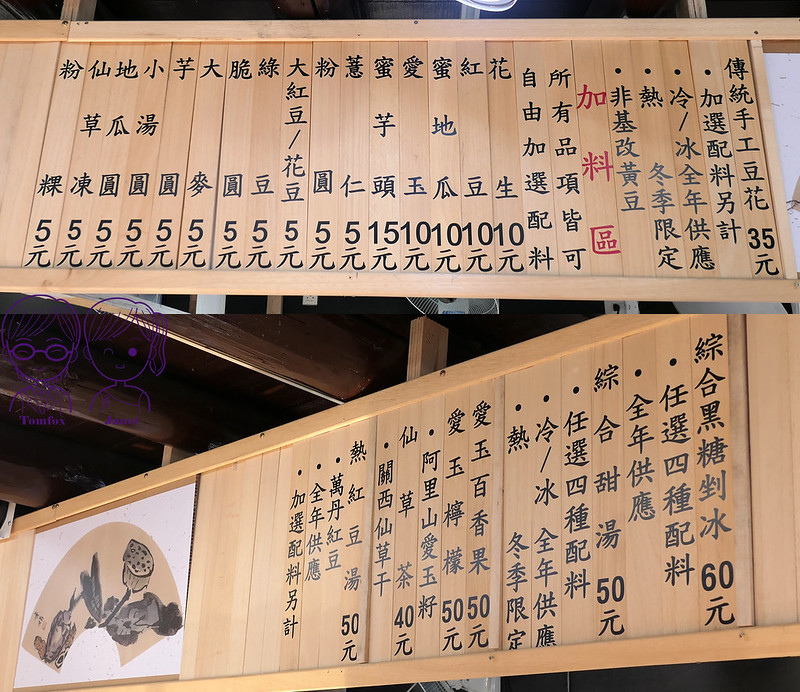 傳統手工豆花 35元
・加選配料另計
・冷/冰全年供應
・熱 冬季限定
・非基改黃豆
加料區
所有品項皆可
自由加選配料
花生 10元
紅豆 10元
蜜地瓜 10元
愛玉 10元
蜜芋頭 15元
薏仁 5元
粉圓 5元
大紅豆/花豆 5元
綠豆 5元
脆圓 5元
大麥 5元
芋圓 5元
小湯圓 5元
地瓜圓 5元
仙草凍 5元
粉粿 5元
綜合黑糖剉冰 60元
・任選四種配料
・全年供應
綜合甜湯 50元
・任選四種配料
・冷/冰 全年供應
・熱 冬季限定
愛玉百香果 50元
愛玉檸檬 50元
・阿里山愛玉籽
仙草茶 40元
・關西仙草干
熱紅豆湯 50元
・萬丹紅豆
・全年供應
・加選配料另計
Tomfox
Janet